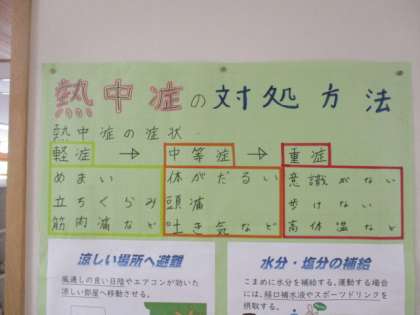 熱中症の対処方法
熱中症の症状
軽症 → 中等症 → 重症
めまい 体がだるい 意識がない
立ちくらみ 頭痛 歩けない
筋肉痛など 吐き気など 高体温など
涼しい場所へ避難 水分・塩分の補給
風通しの良い日陰やエアコンが効いた
涼しい部屋へ移動させる。
こまめに水分を補給する。運動する場合
には、経口補水液やスポーツドリンクを
摂取する。